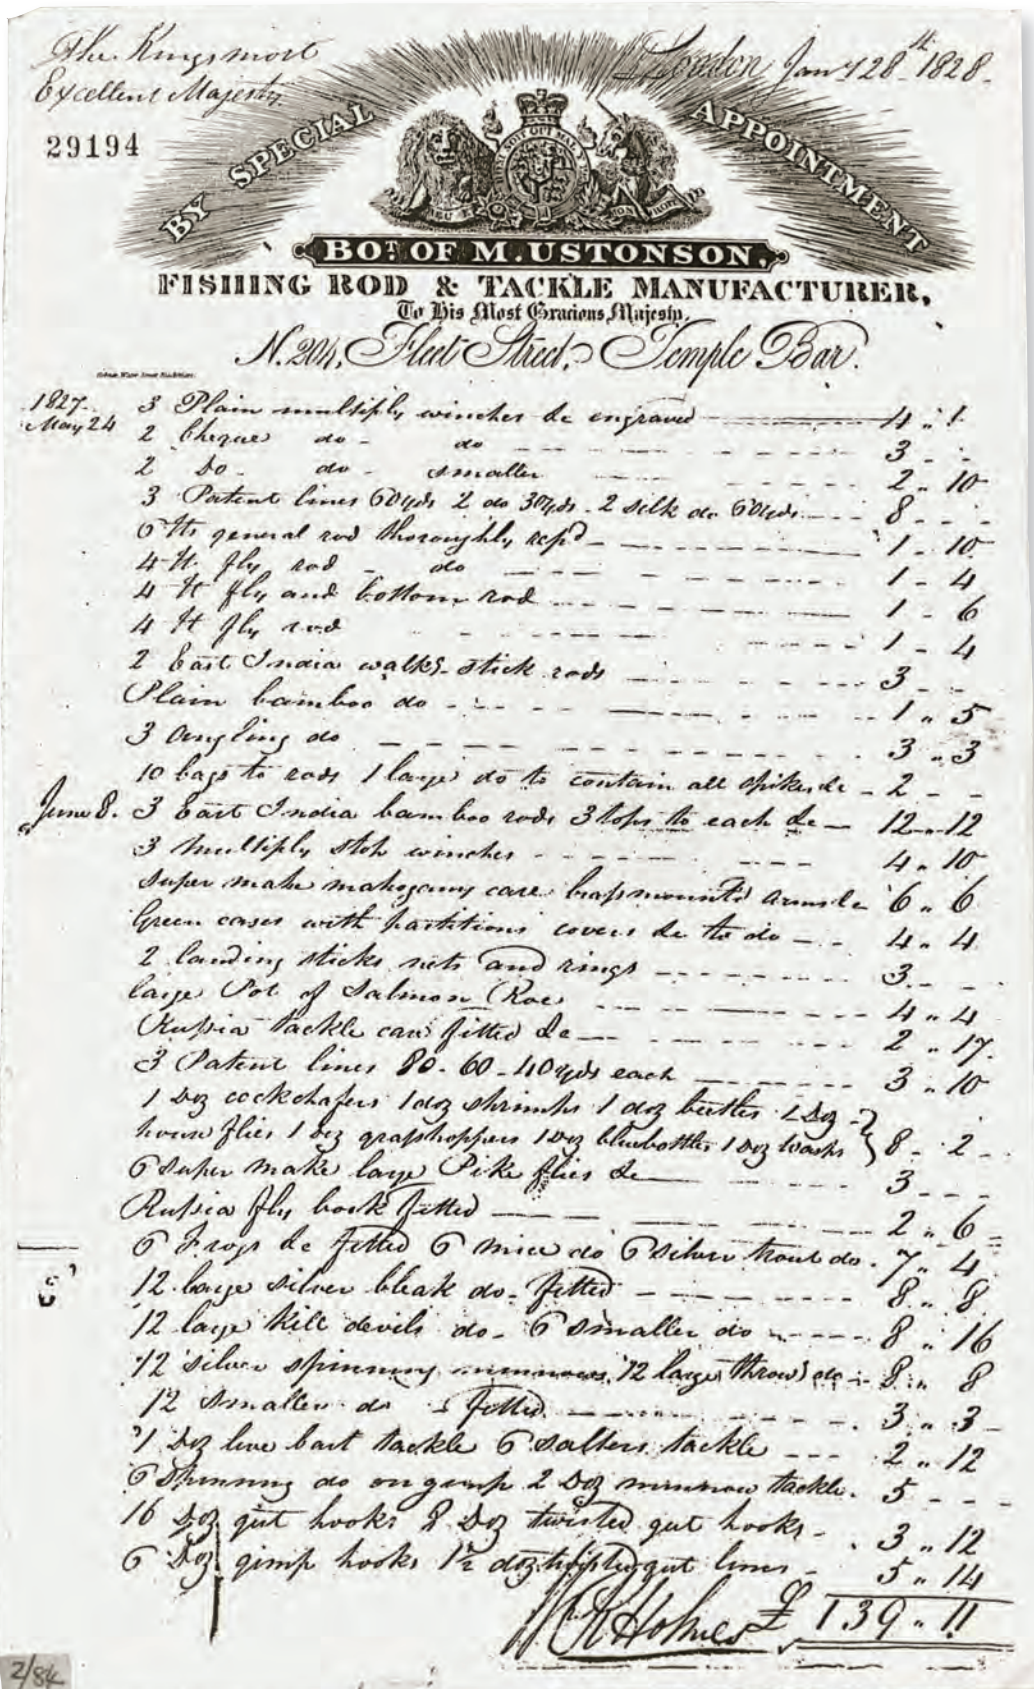 The Kings most
Excellent Majesty.
London Jany 28th 1828.
29194
BY SPECIAL APPOINTMENT
BOT. OF M. USTONSON.
FISHING ROD & TACKLE MANUFACTURER,
To His Most Gracious Majesty,
N. 204, Fleet Street, Temple Bar.
1827
May 24
3 Plain multiply winches &c engraved 4 " 1
2 Cheque do - do 3 - -
2 Do - do - smaller 2 " 10
3 Patent lines 60 yds 2 do 30 yds - 2 silk do 60 yds 8 - -
6 ft general rod thoroughly repd 1 - 10
4 ft fly rod - do 1 - 4
4 ft fly and bottom rod 1 - 6
4 ft fly rod 1 - 4
2 East India walkg stick rods 3 - -
Plain bamboo do 1 " 5
3 Angling do 3 " 3
10 bags to rods 1 large do to contain all spikes &c 2 - -
June 8. 3 East India bamboo rods 3 tops to each &c 12 " 12
3 Multiply stop winches 4 " 10
super make mahogany case brass mounted 6 " 6
Green cases with partitions covers &c to do 4 " 4
2 landing sticks nets and rings 3 - -
large Pot of Salmon Roe 4 " 4
Russia tackle case fitted &c 2 " 17
3 Patent lines 80 - 60 - 40 yds each 3 " 10
1 Doz cockchafers 1 doz shrimps 1 doz beetles 1 Doz
house flies 1 Doz grasshoppers 1 Doz bluebottles 1 Doz wasps 8 - 2
6 super make large Pike flies &c 3 - -
Russia fly book fitted 2 " 6
6 Frogs &c fitted 6 mice do 6 silver trout do 7 " 4
12 large silver bleak do - fitted 8 " 8
12 large kill devils do - 6 smaller do 8 " 16
12 silver spinning minnows 12 large throw do 8 " 8
12 smaller do fitted 3 " 3
1 Doz live bait tackle 6 salters tackle 2 " 12
6 spinning do on gimp 2 Doz minnow tackle 5 - -
16 Doz gut hooks 8 Doz twisted gut hooks 3 " 12
6 Doz gimp hooks 1½ doz gut lines 5 " 14
Holmes £ 139 " 11
2/84